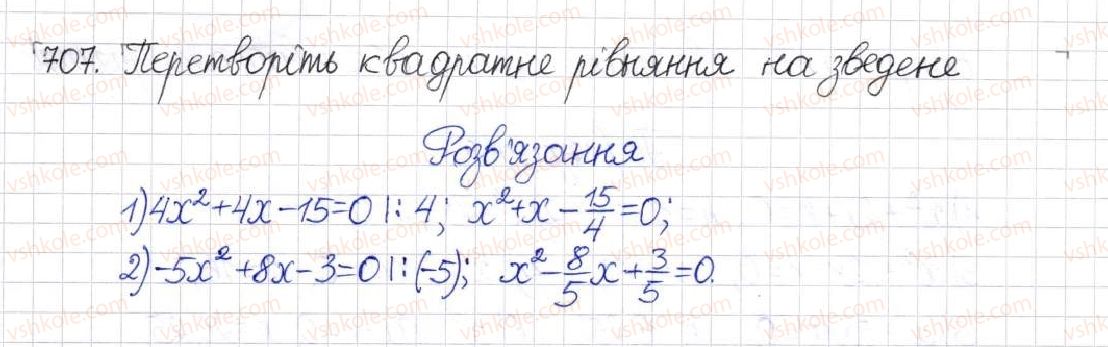 707. Перетворіть квадратне рівняння на зведене
Розв'язання
1) 4x²+4x-15=0 |: 4; x²+x-15/4=0;
2) -5x²+8x-3=0 |: (-5); x²-8/5x+3/5=0.